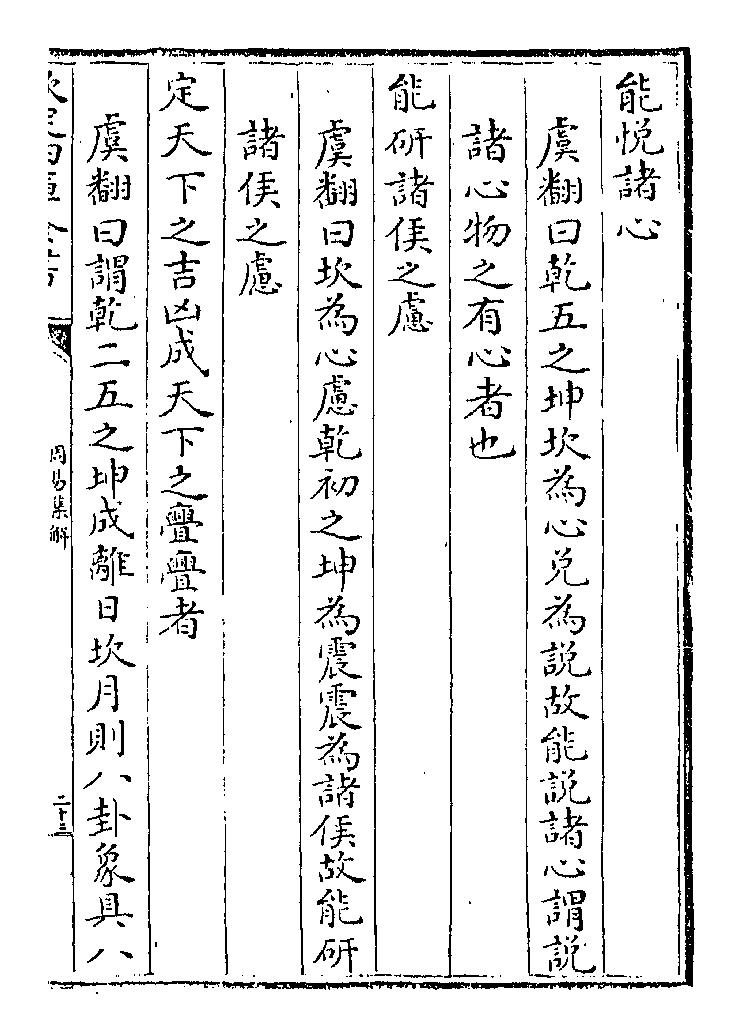 能悦諸心
虞翻曰乾五之坤坎為心兑為説故能説諸心謂説
諸心物之有心者也
能研諸侯之慮
虞翻曰坎為心慮乾初之坤為震震為諸侯故能研
諸侯之慮
定天下之吉凶成天下之亹亹者
虞翻曰謂乾二五之坤成離日坎月則八卦象具八
周易集解
二十三